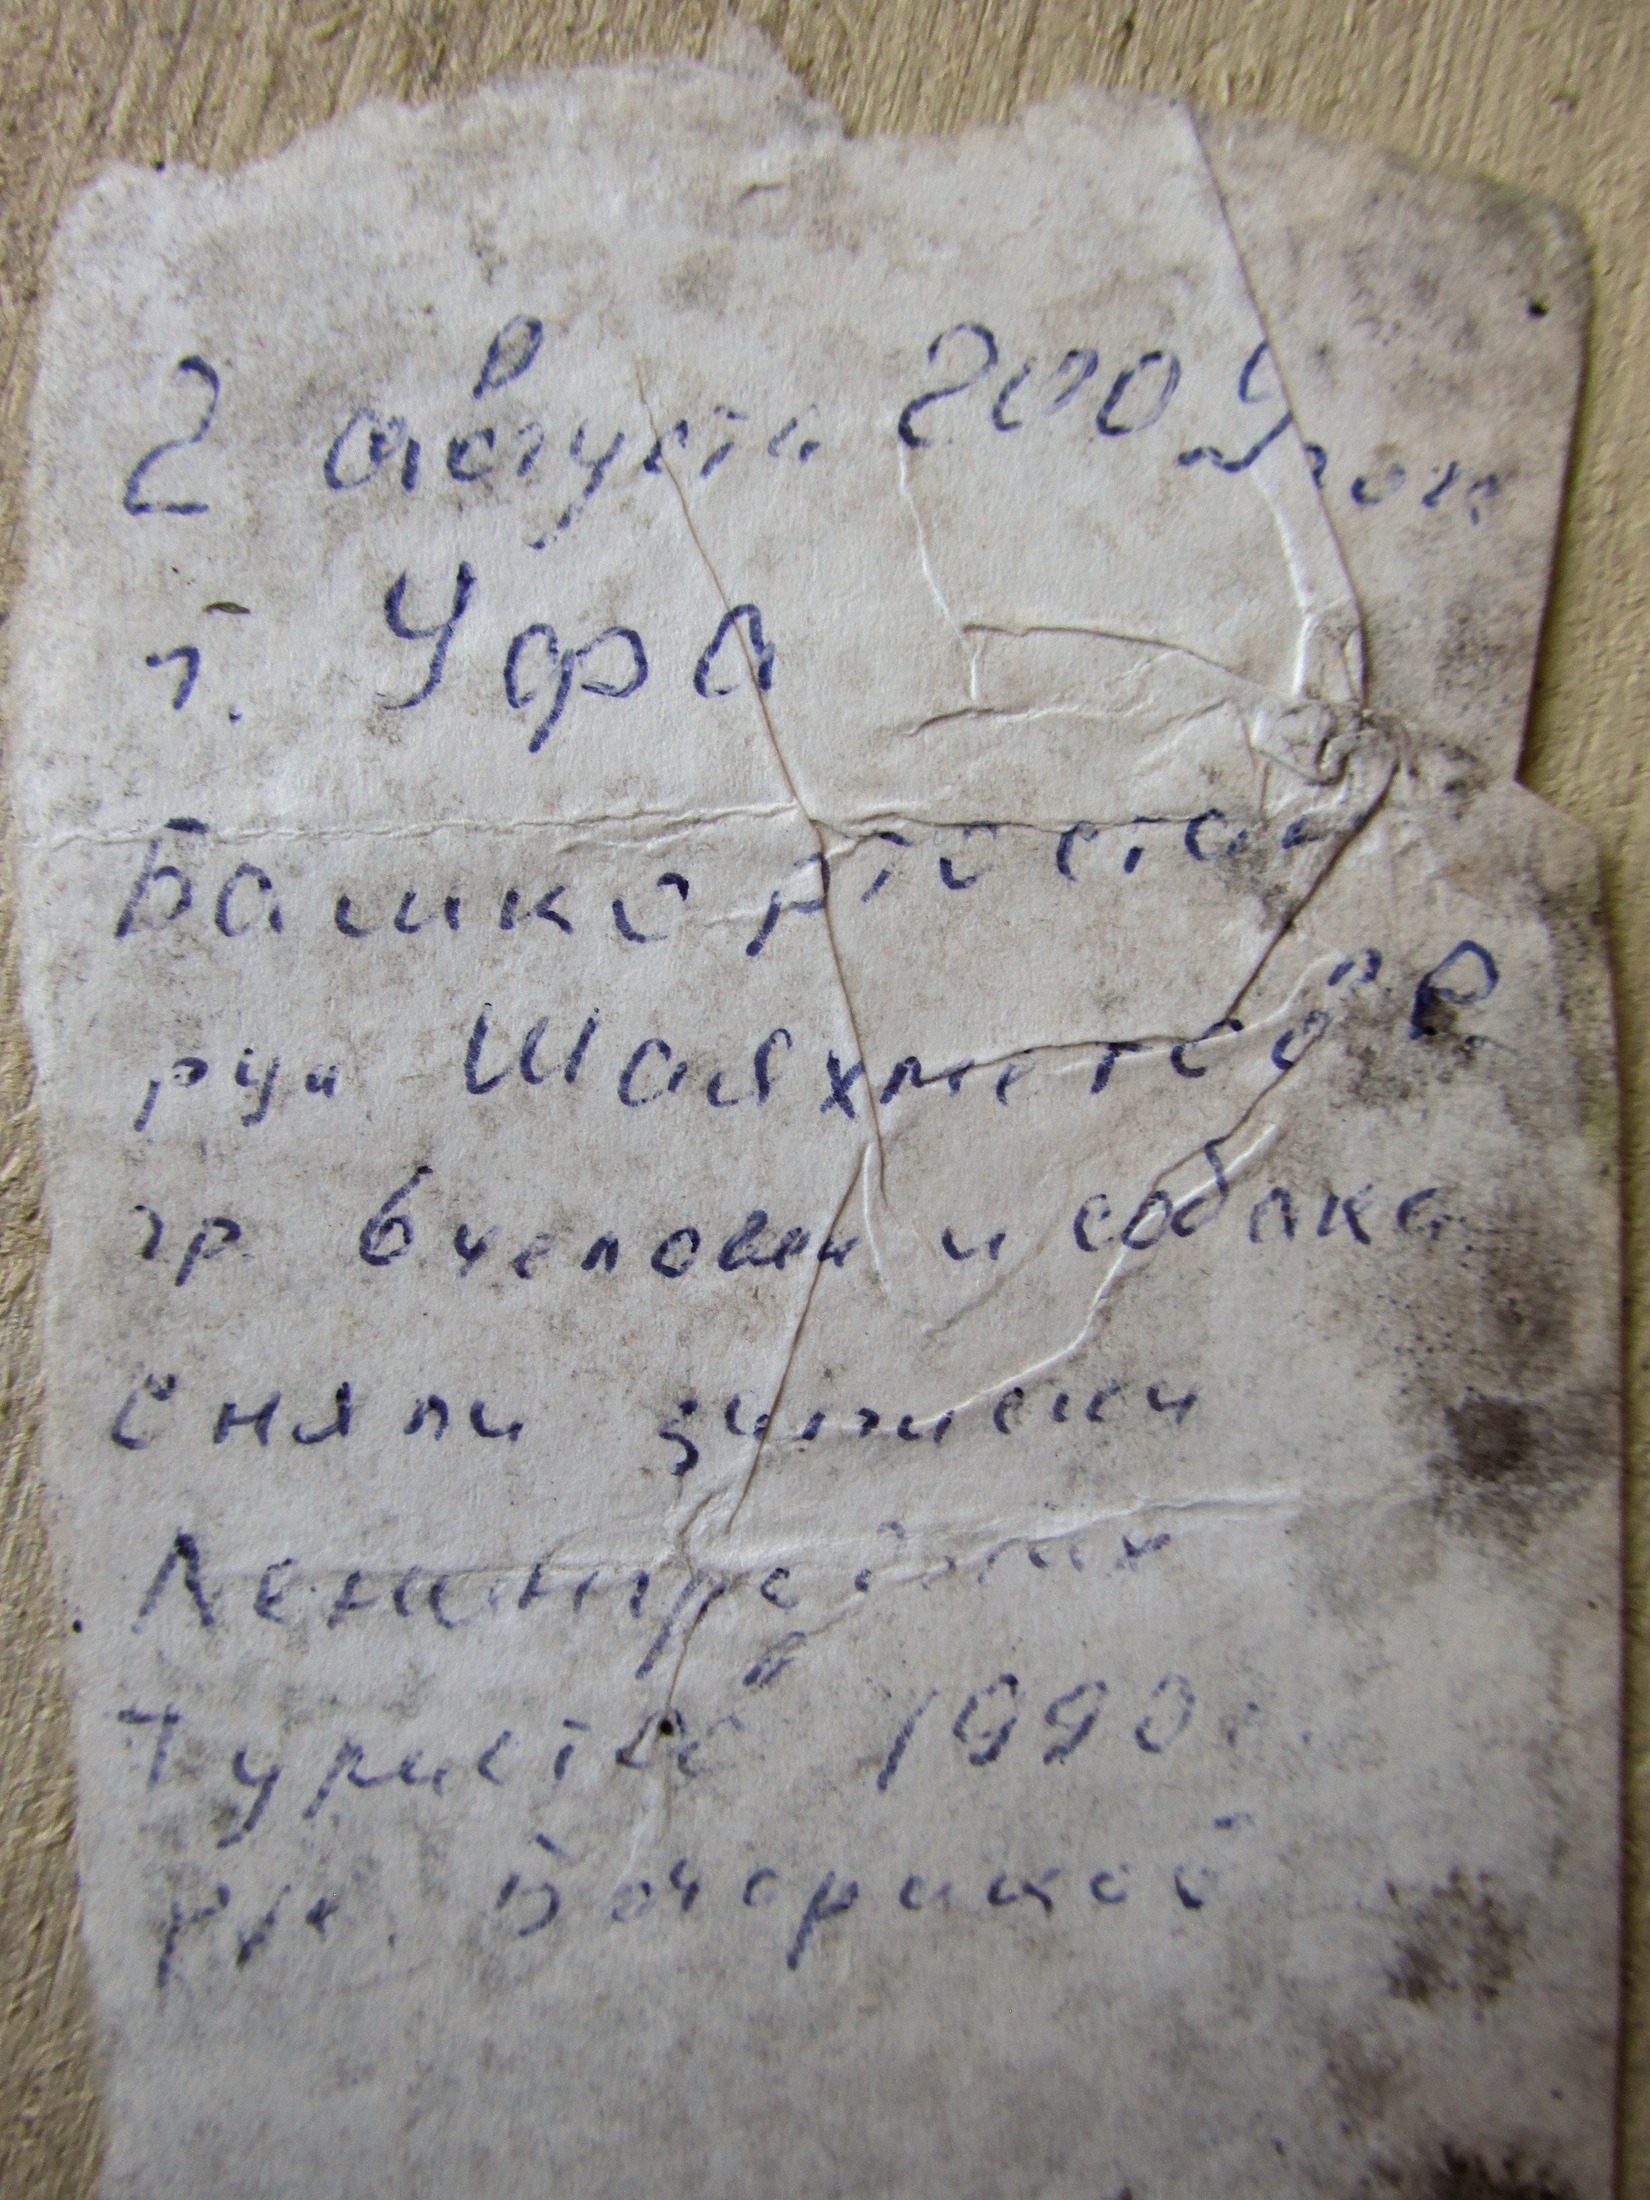 2 августа 2009 года
г. Уфа
Башкортостан
рук. Шаяхметов Р.
гр. 6 человек и собака
Сняли записки
Ленинградских
Туристов 1990 г.
рук.